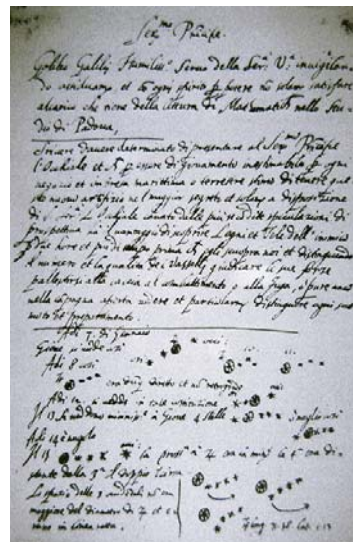 Ser.mo Principe.
Galileo Galilei Humiliss.o Servo della Ser.a V.a invigilan-
do assiduamente et con ogni spirito per potere non solam satisfare
al carico che tiene della lettura di Mathematiche nello Stu-
dio di Padova,
Scrivere d'havere determinato di presentare al Ser.mo Principe
l'Occhiale et per essere di giovamento inestimabile per ogni
negocio et impresa marittima o terrestre stimo di tenere que-
sto nuovo artifizio nel maggior segreto et solam a dispositione
di S. Ser.a L'Occhiale cavato dalle più recondite speculazioni di
prospettiva ha il vantaggio di scoprire Legni et Vele dell'inimico
due hore et più di tempo prima che esso scopra noi et distinguendo
il numero et la qualità de i Vasselli giudicare le sue forze
pallestirsi alla caccia al combattimento o alla fuga, o pure anco
nella campagna aperta vedere et particolarmente distinguere ogni suo
moto et preparamento.
Adi 7. di Gennaio
Giove si vede così
Adi 8 così
era diretto et non retrogrado
Adi 12. si vedde in tale costituzione
Il 13 si veddono vicinissime a Giove 4 stelle
Adi 14 è nugolo
Il 15
la 4.a era di-
stante dalla 3.a il doppio
Lo spazio delle 3 occidentali non era
maggiore del diametro di et e-
rano in linea retta.